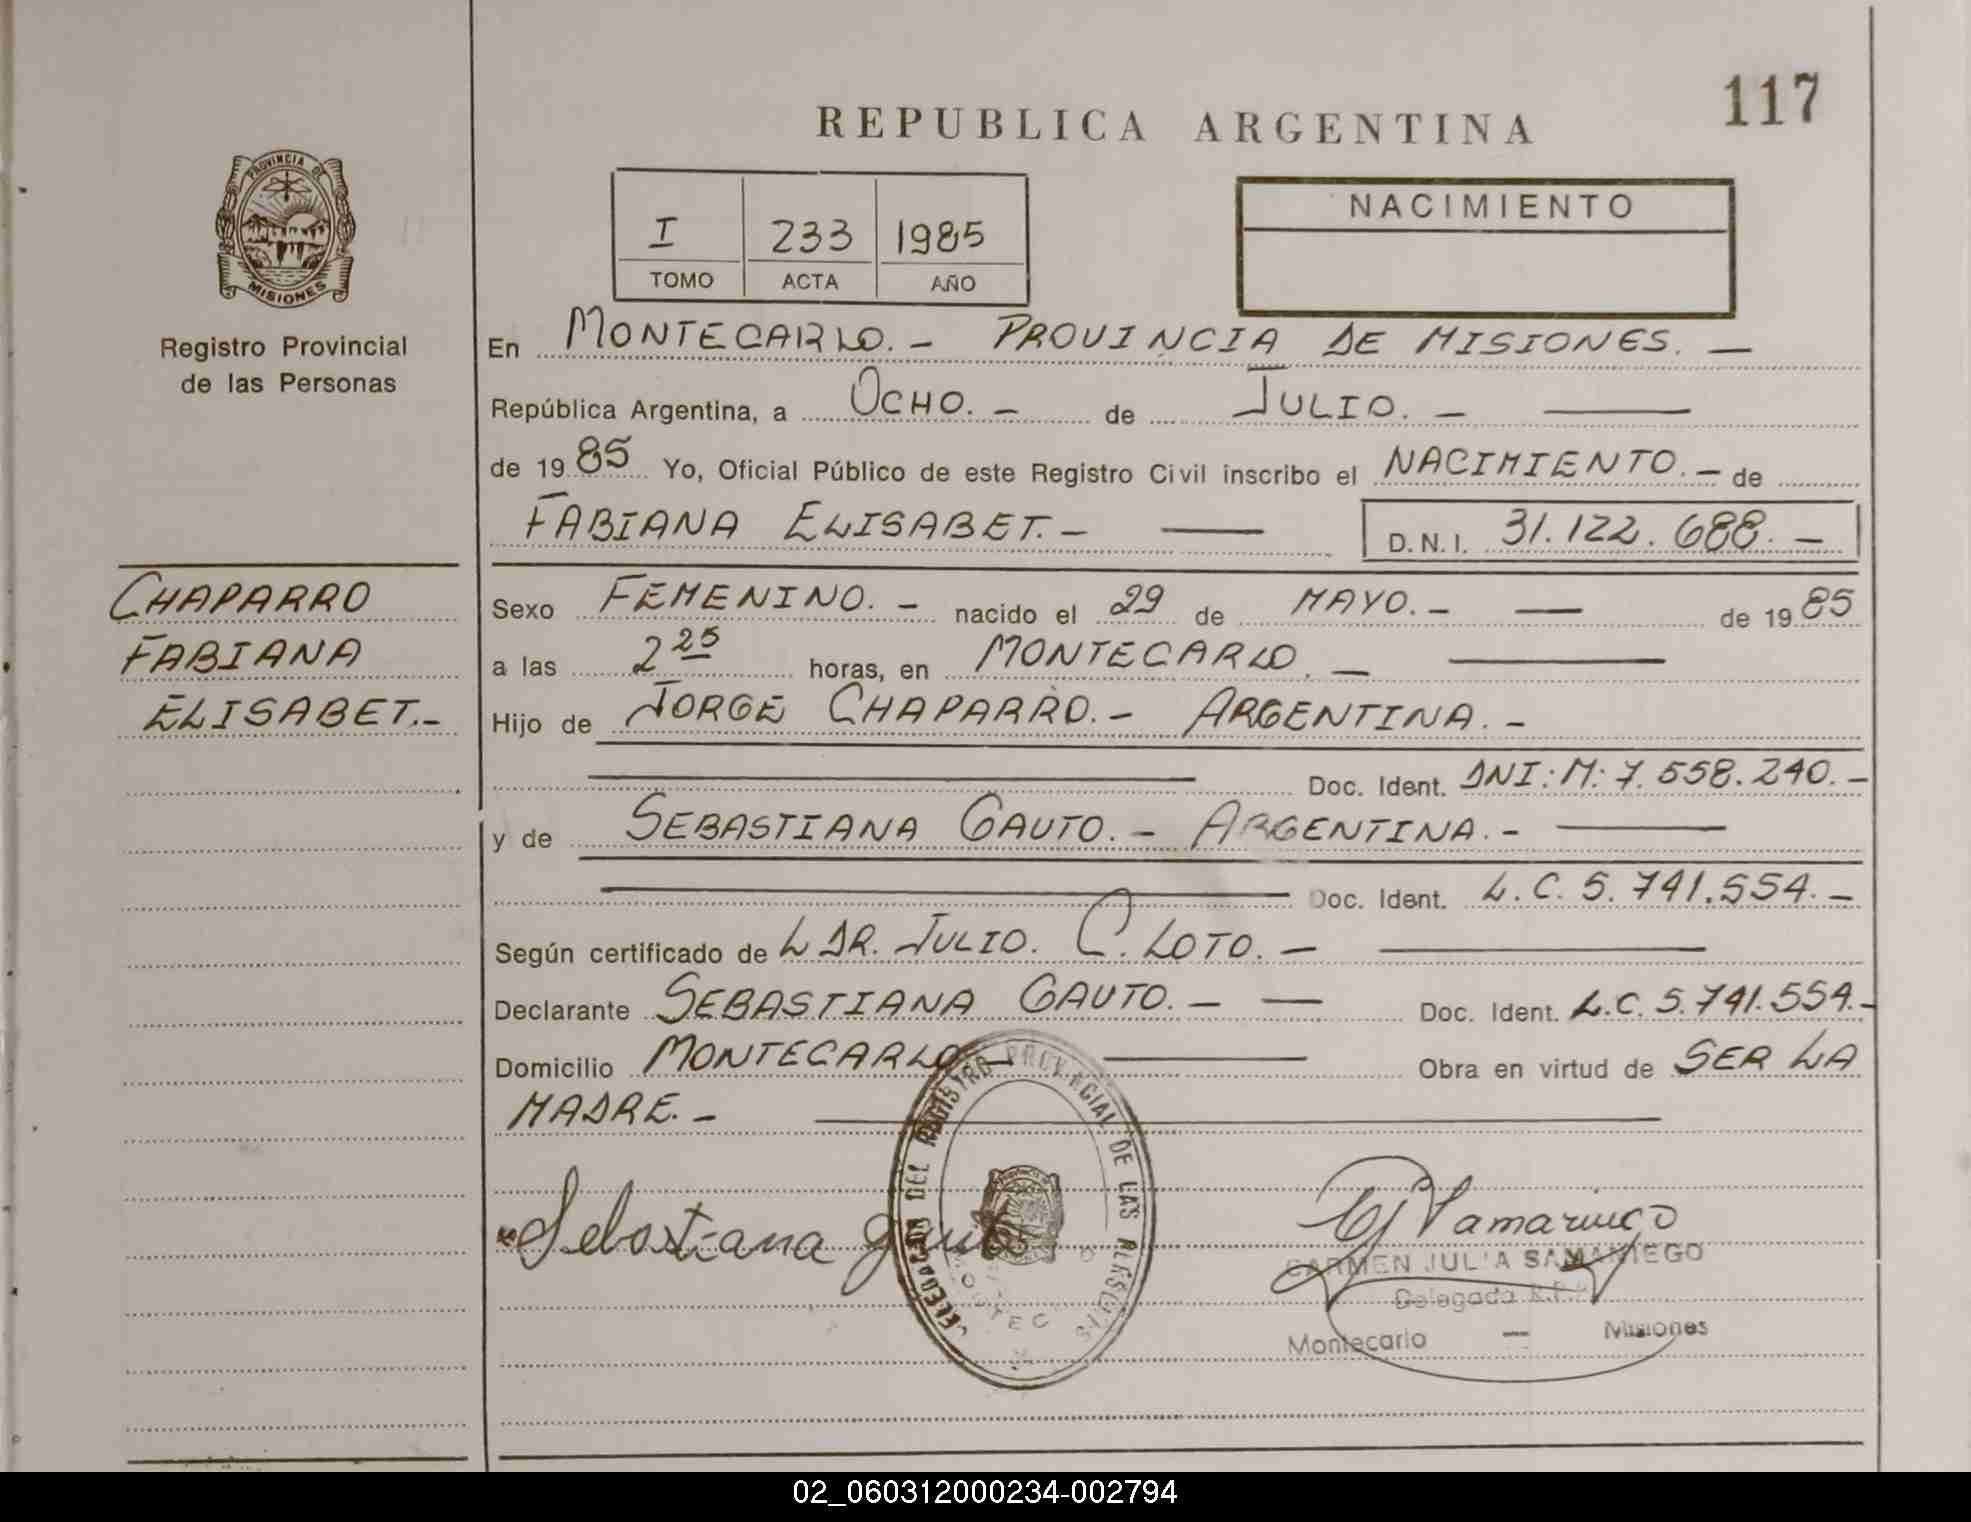 117
REPUBLICA ARGENTINA
PROVINCIA DE
MISIONES
Registro Provincial
de las Personas
I 233 1985
TOMO ACTA AÑO
NACIMIENTO
En MONTECARLO.- PROVINCIA DE MISIONES. —
República Argentina, a OCHO. - de JULIO. - —
de 1985 Yo, Oficial Público de este Registro Civil inscribo el NACIMIENTO. - de
FABIANA ELISABET. - — D.N.I. 31.122.688. -
CHAPARRO
FABIANA
ELISABET.-
Sexo FEMENINO. - nacido el 29 de MAYO. - — de 1985
a las 2 25 horas, en MONTECARLO. - —
Hijo de JORGE CHAPARRO. - ARGENTINA. -
Doc. Ident. DNI: M: 7.558.240. -
y de SEBASTIANA GAUTO. - ARGENTINA. - —
Doc. Ident. L.C. 5.741.554. -
Según certificado de L DR. JULIO. C. LOTO. - —
Declarante SEBASTIANA GAUTO. - — Doc. Ident. L.C. 5.741.554.-
Domicilio MONTECARLO - — Obra en virtud de SER LA
MADRE. - —
DEL REGISTRO PROVINCIAL DE LAS
Sebastiana Gauto
CARMEN JULIA SAMANIEGO
Delegada R.P.P.
Montecarlo — Misiones
02_060312000234-002794